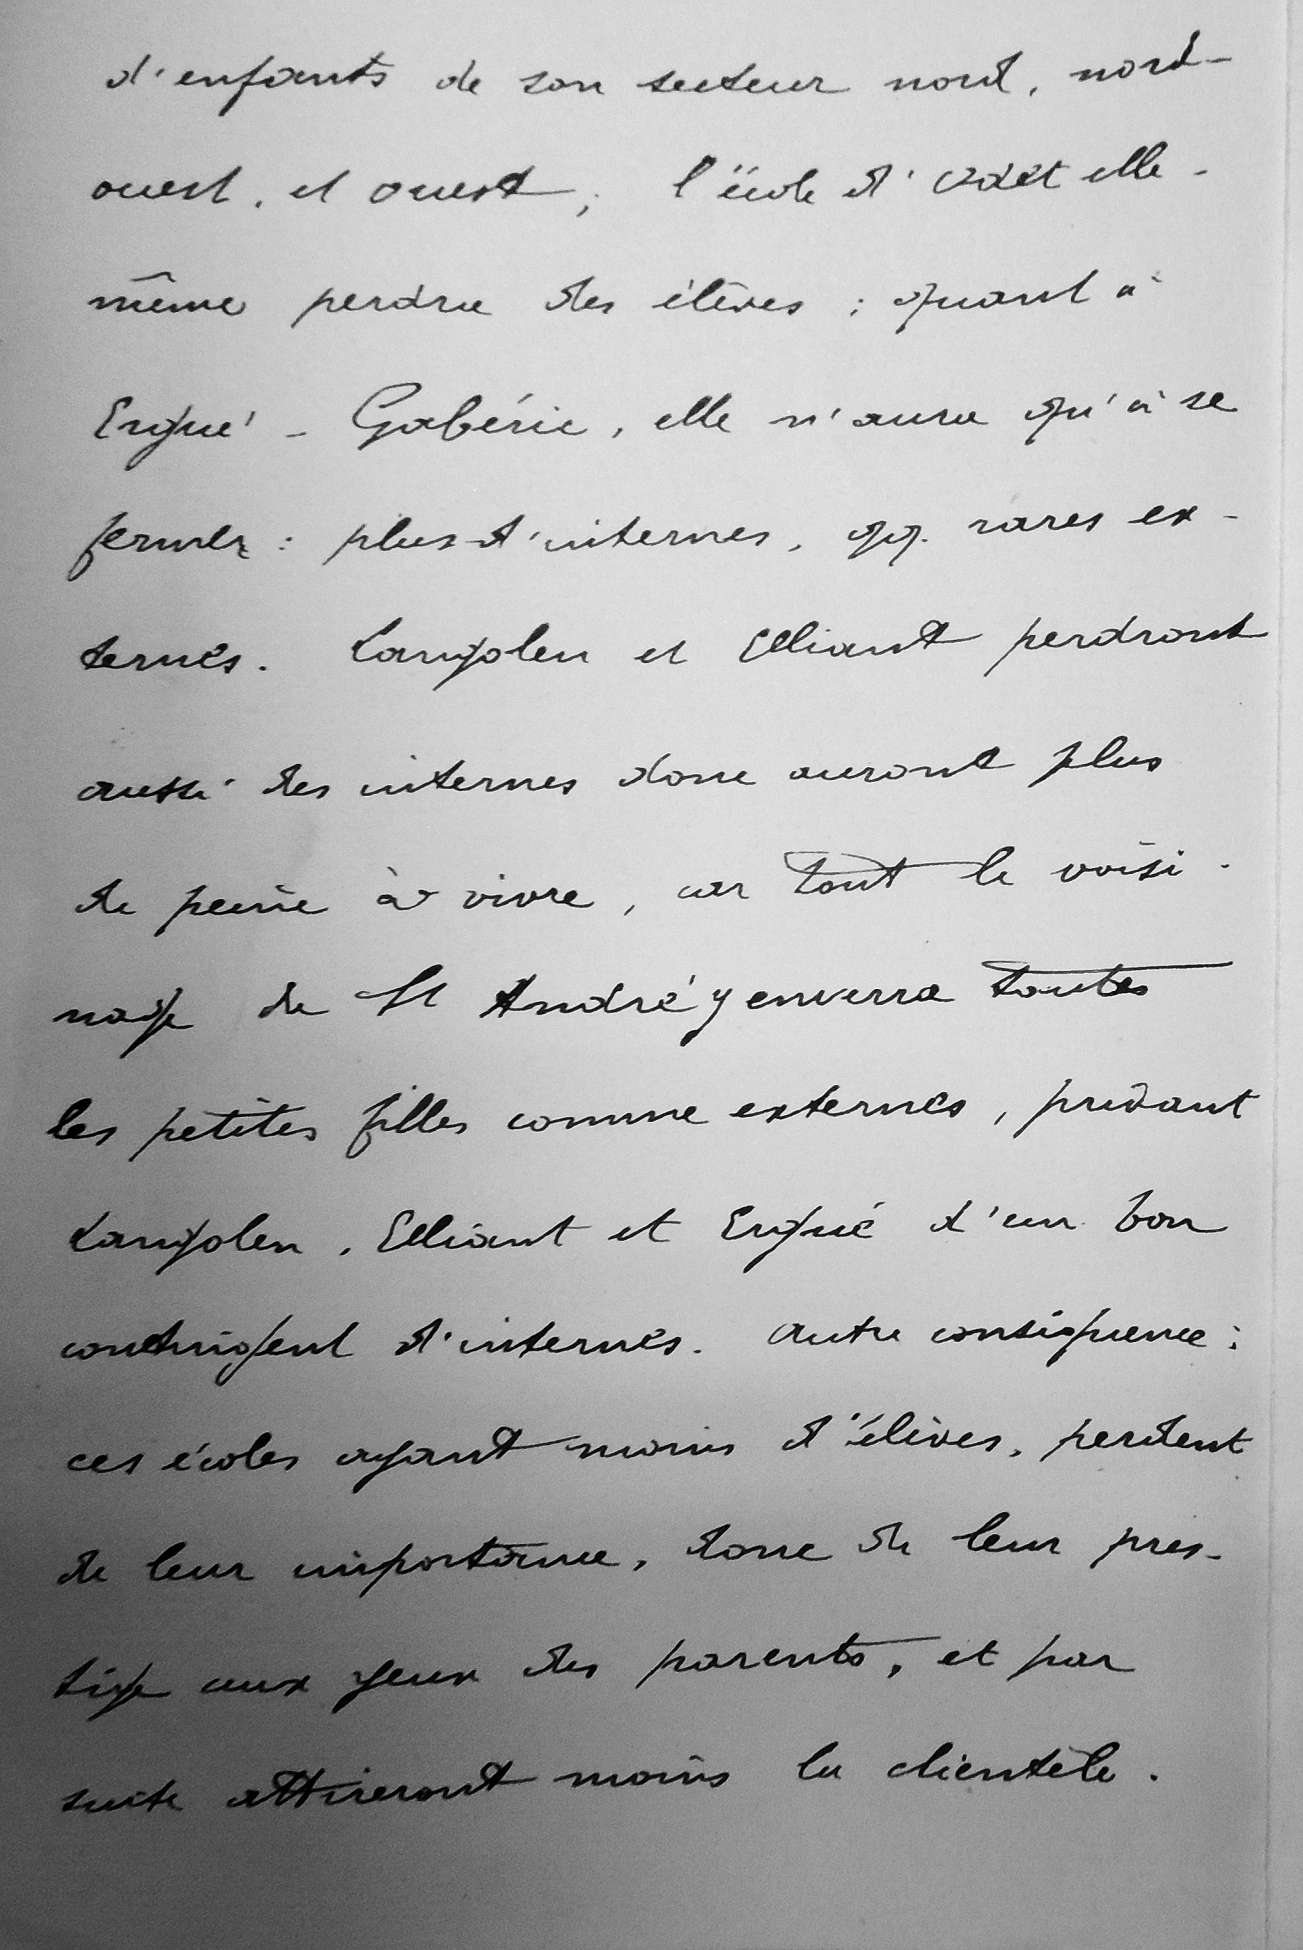 d'enfants de son secteur nord, nord-
ouest, et ouest ; l'école d'Odet elle-
même perdra des élèves ; quant à
Ergué-Gabéric, elle n'aura qu'à se
fermer : plus d'internes, qq. rares ex-
ternes. Langolen et Elliant perdront
aussi des internes donc auront plus
de peine à vivre, car tout le voisi-
nage de St André y enverra toutes
les petites filles comme externes, privant
Langolen, Elliant et Ergué d'un bon
contingent d'internes. Autre conséquence :
ces écoles ayant moins d'élèves, perdent
de leur importance, donc de leur pres-
tige aux yeux des parents, et par
suite attireront moins la clientèle.